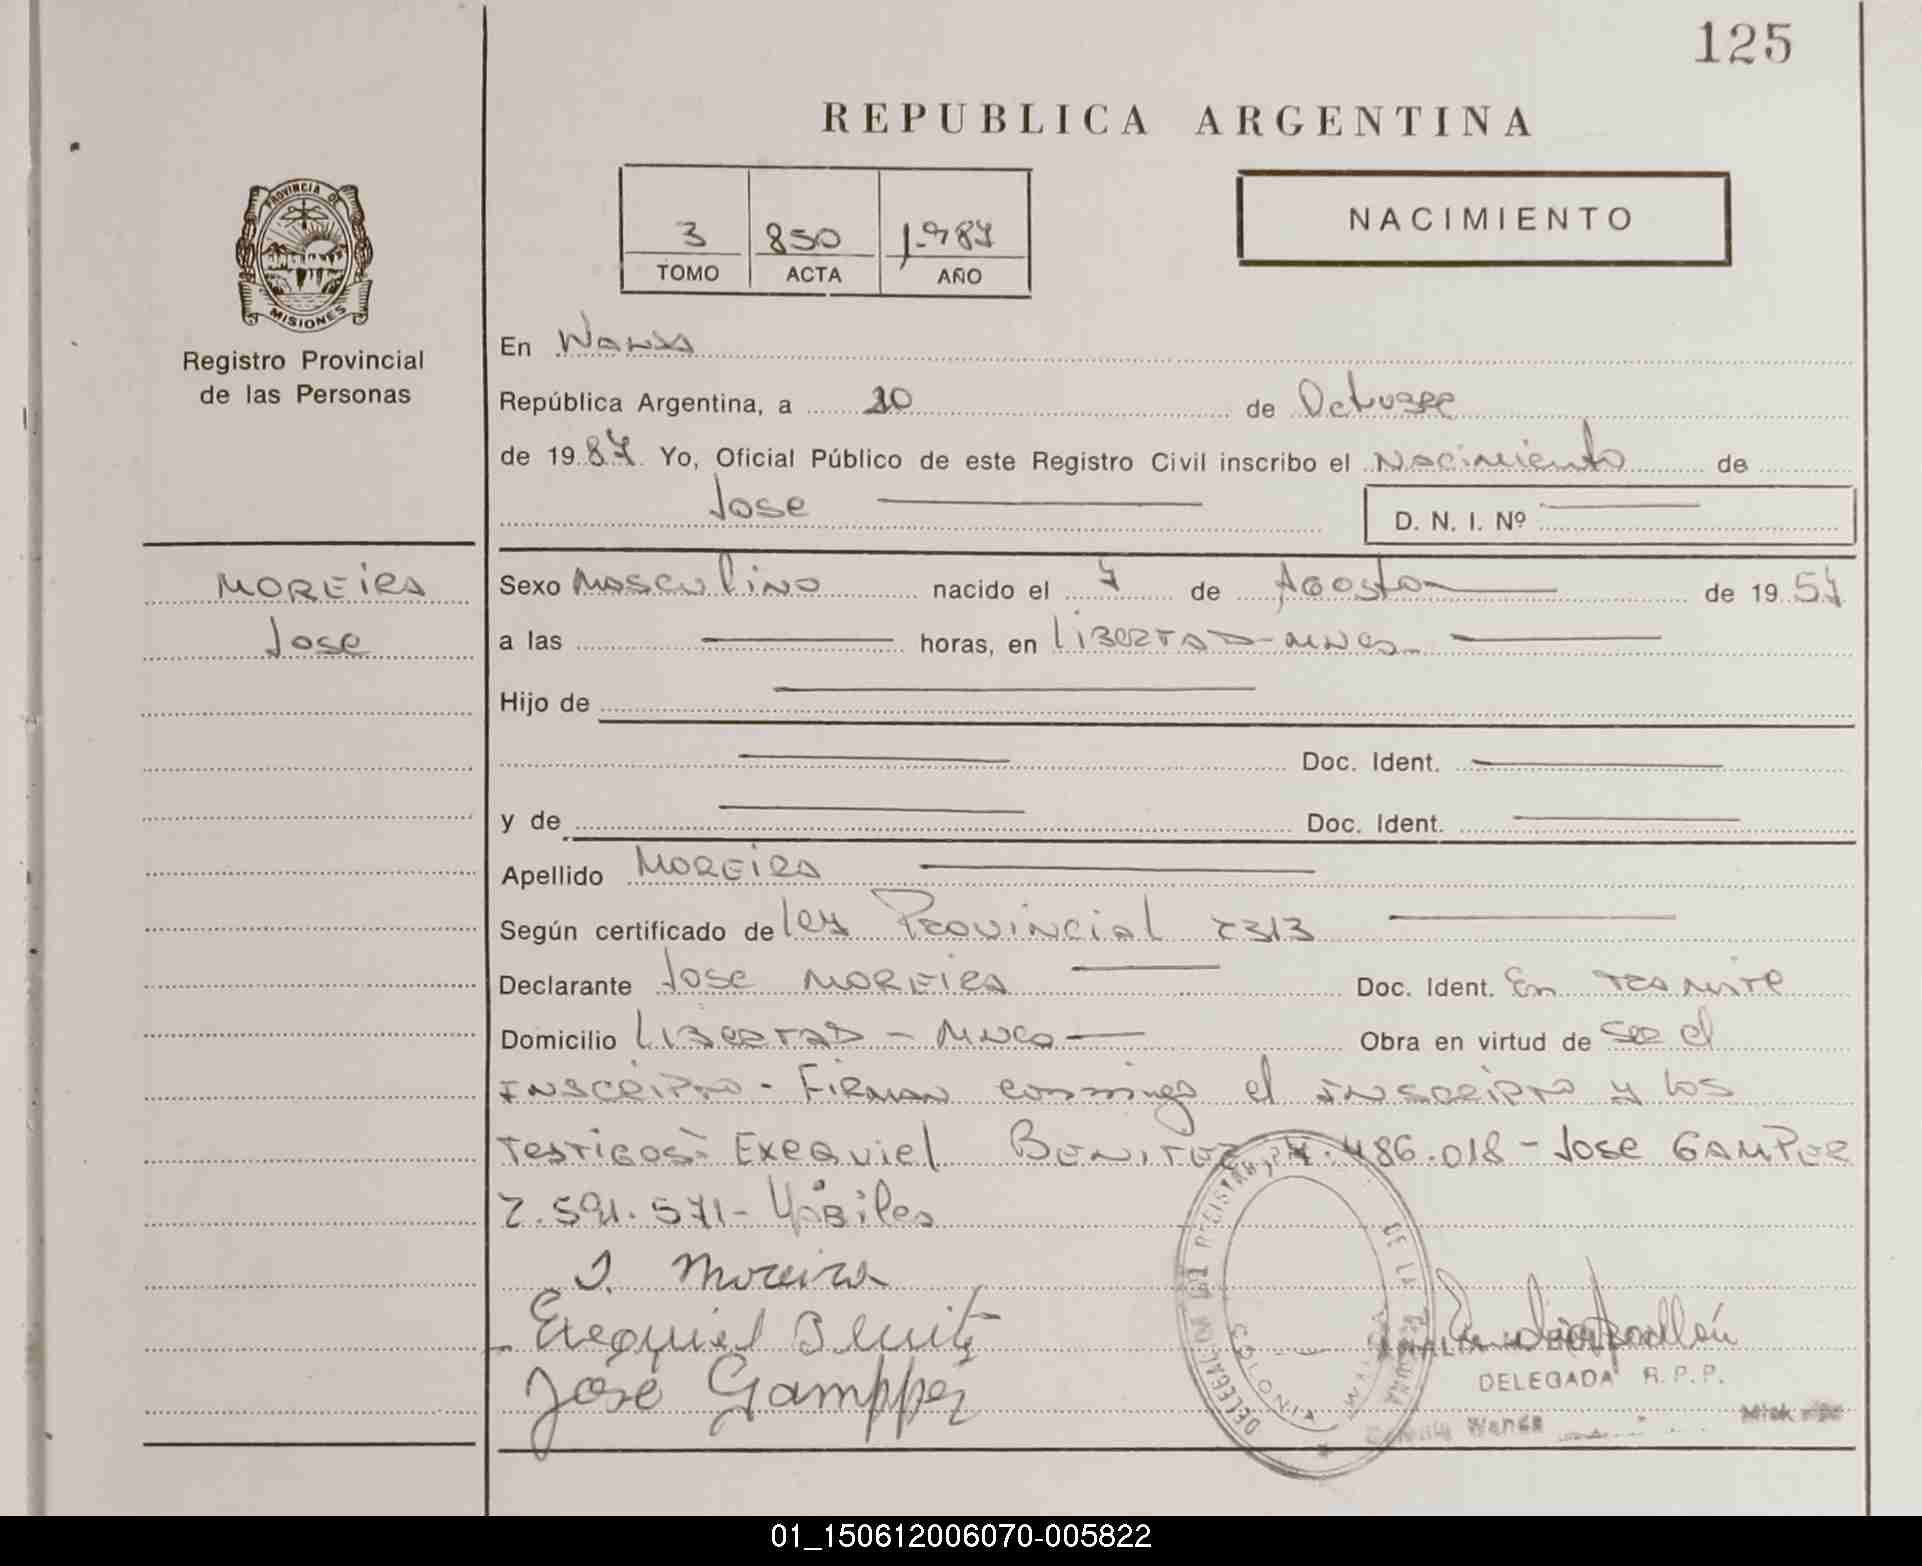 125
REPUBLICA ARGENTINA
NACIMIENTO
3 850 1.987
TOMO ACTA AÑO
PROVINCIA DE
MISIONES
Registro Provincial
de las Personas
En Wanda
República Argentina, a 20 de Octubre
de 1987 Yo, Oficial Público de este Registro Civil inscribo el Nacimiento de
Jose
D. N. I. Nº
MOREIRA
Jose
Sexo Masculino nacido el 7 de Agosto de 1957
a las horas, en LIBERTAD - MNES.
Hijo de
Doc. Ident.
y de Doc. Ident.
Apellido MOREIRA
Según certificado de Ley Provincial 2313
Declarante Jose MOREIRA Doc. Ident. En Tramite
Domicilio LIBERTAD - MNES Obra en virtud de ser el
INSCRIPTO - Firman conmigo el INSCRIPTO y los
Testigos: Exequiel BENITEZ 7.486.018 - Jose GAMPER
7.591.571 - Hábiles
J. Moreira
Exequiel Benitez
José Gampper
DELEGACION DEL REGISTRO P. DE LA PERSONA
COLONIA WANDA
DELEGADA R.P.P.
Colonia Wanda
01_150612006070-005822